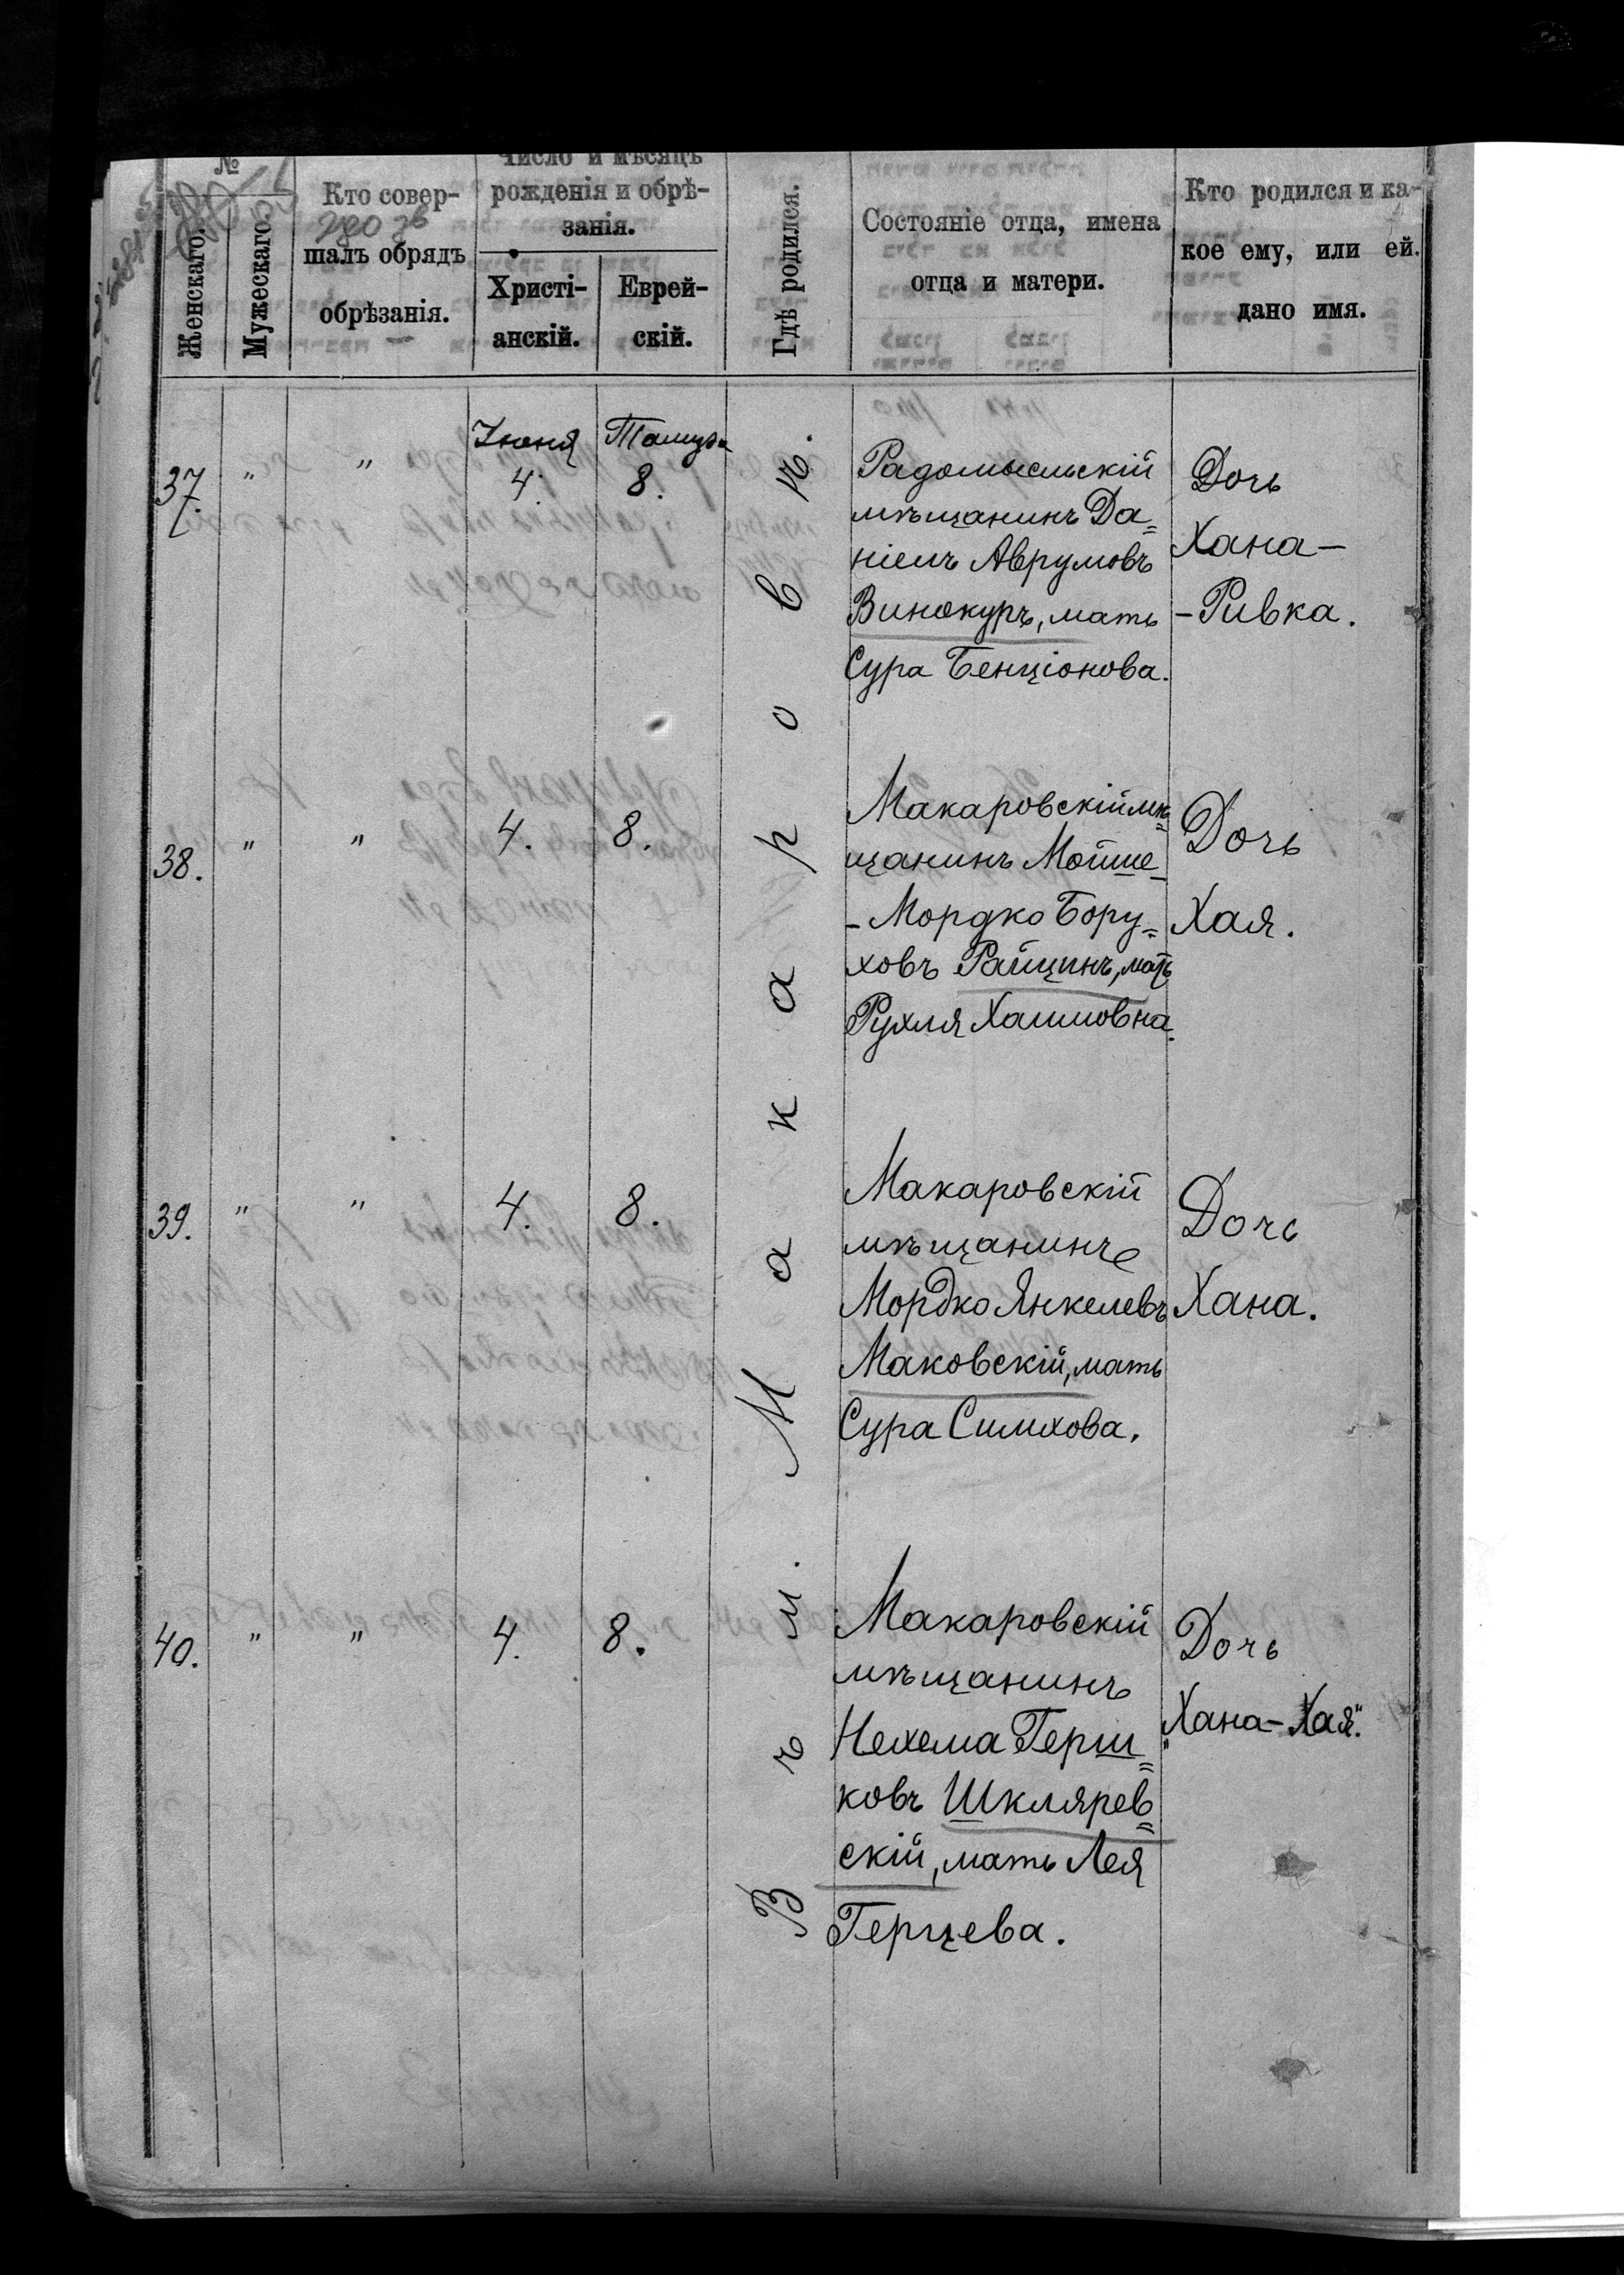 №
Женскаго.
Мужескаго.
Кто совер-
шалъ обрядъ
обрѣзанія.
Число и мѣсяцъ
рожденія и обрѣ-
занія.
Христі-
анскій.
Еврей-
скій.
Гдѣ родился.
Состояніе отца, имена
отца и матери.
Кто родился и ка-
кое ему, или ей.
дано имя.
Въ м. Макаровѣ.
37. " " Іюня 4. Тамуза 8.
Радомысльскій
мѣщанинъ Да=
ніелъ Аврумовъ
Винокуръ, мать
Сура Бенціонова.
Дочь
Хана-
-Ривка.
38. " " 4. 8.
Макаровскій мѣ=
щанинъ Мойше-
-Мордко Бору=
ховъ Райцинъ, мать
Рухля Хаимовна.
Дочь
Хая.
39. " " 4. 8.
Макаровскій
мѣщанинъ
Мордко Янкелевъ
Маковскій, мать
Сура Симхова.
Дочь
Хана.
40. " " 4. 8.
Макаровскій
мѣщанинъ
Нехема Герш=
ковъ Шклярев=
скій, мать Лея
Герцева.
Дочь
„Хана-Хая".